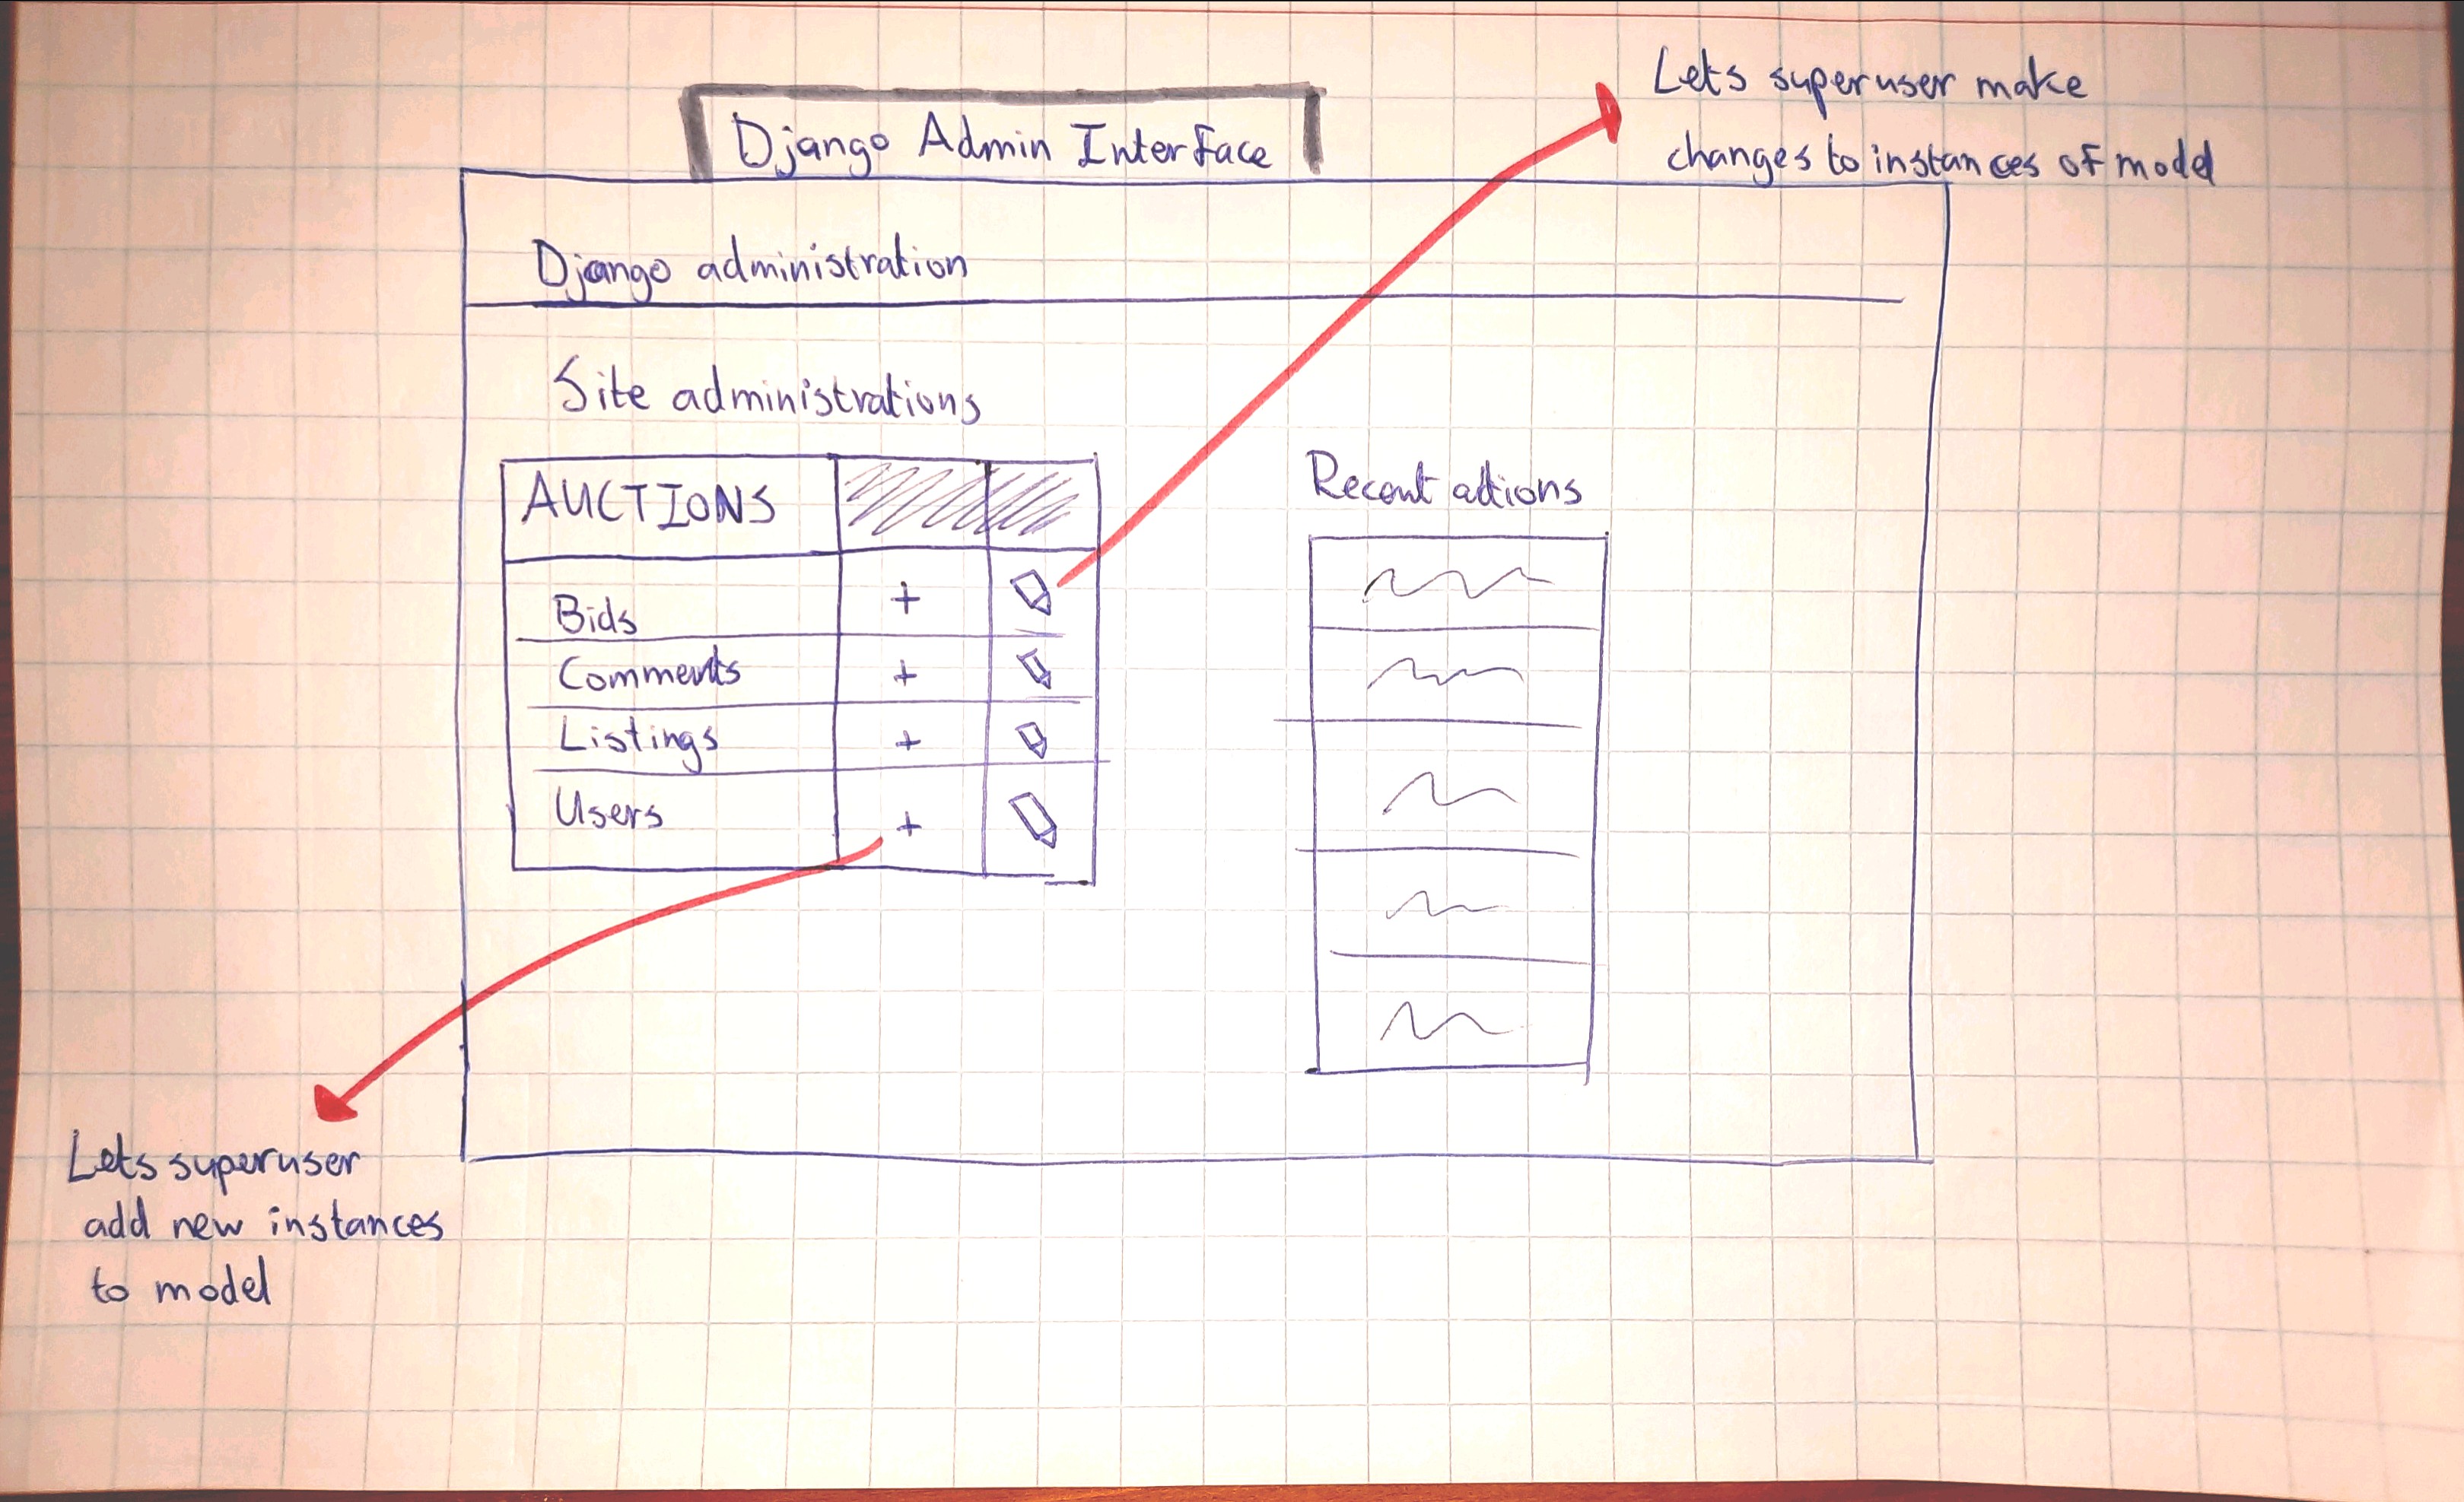 Django Admin Interface
Lets superuser make
changes to instances of model
Django administration
Site administrations
AUCTIONS
Bids +
Comments +
Listings +
Users +
Recent actions
Lets superuser
add new instances
to model